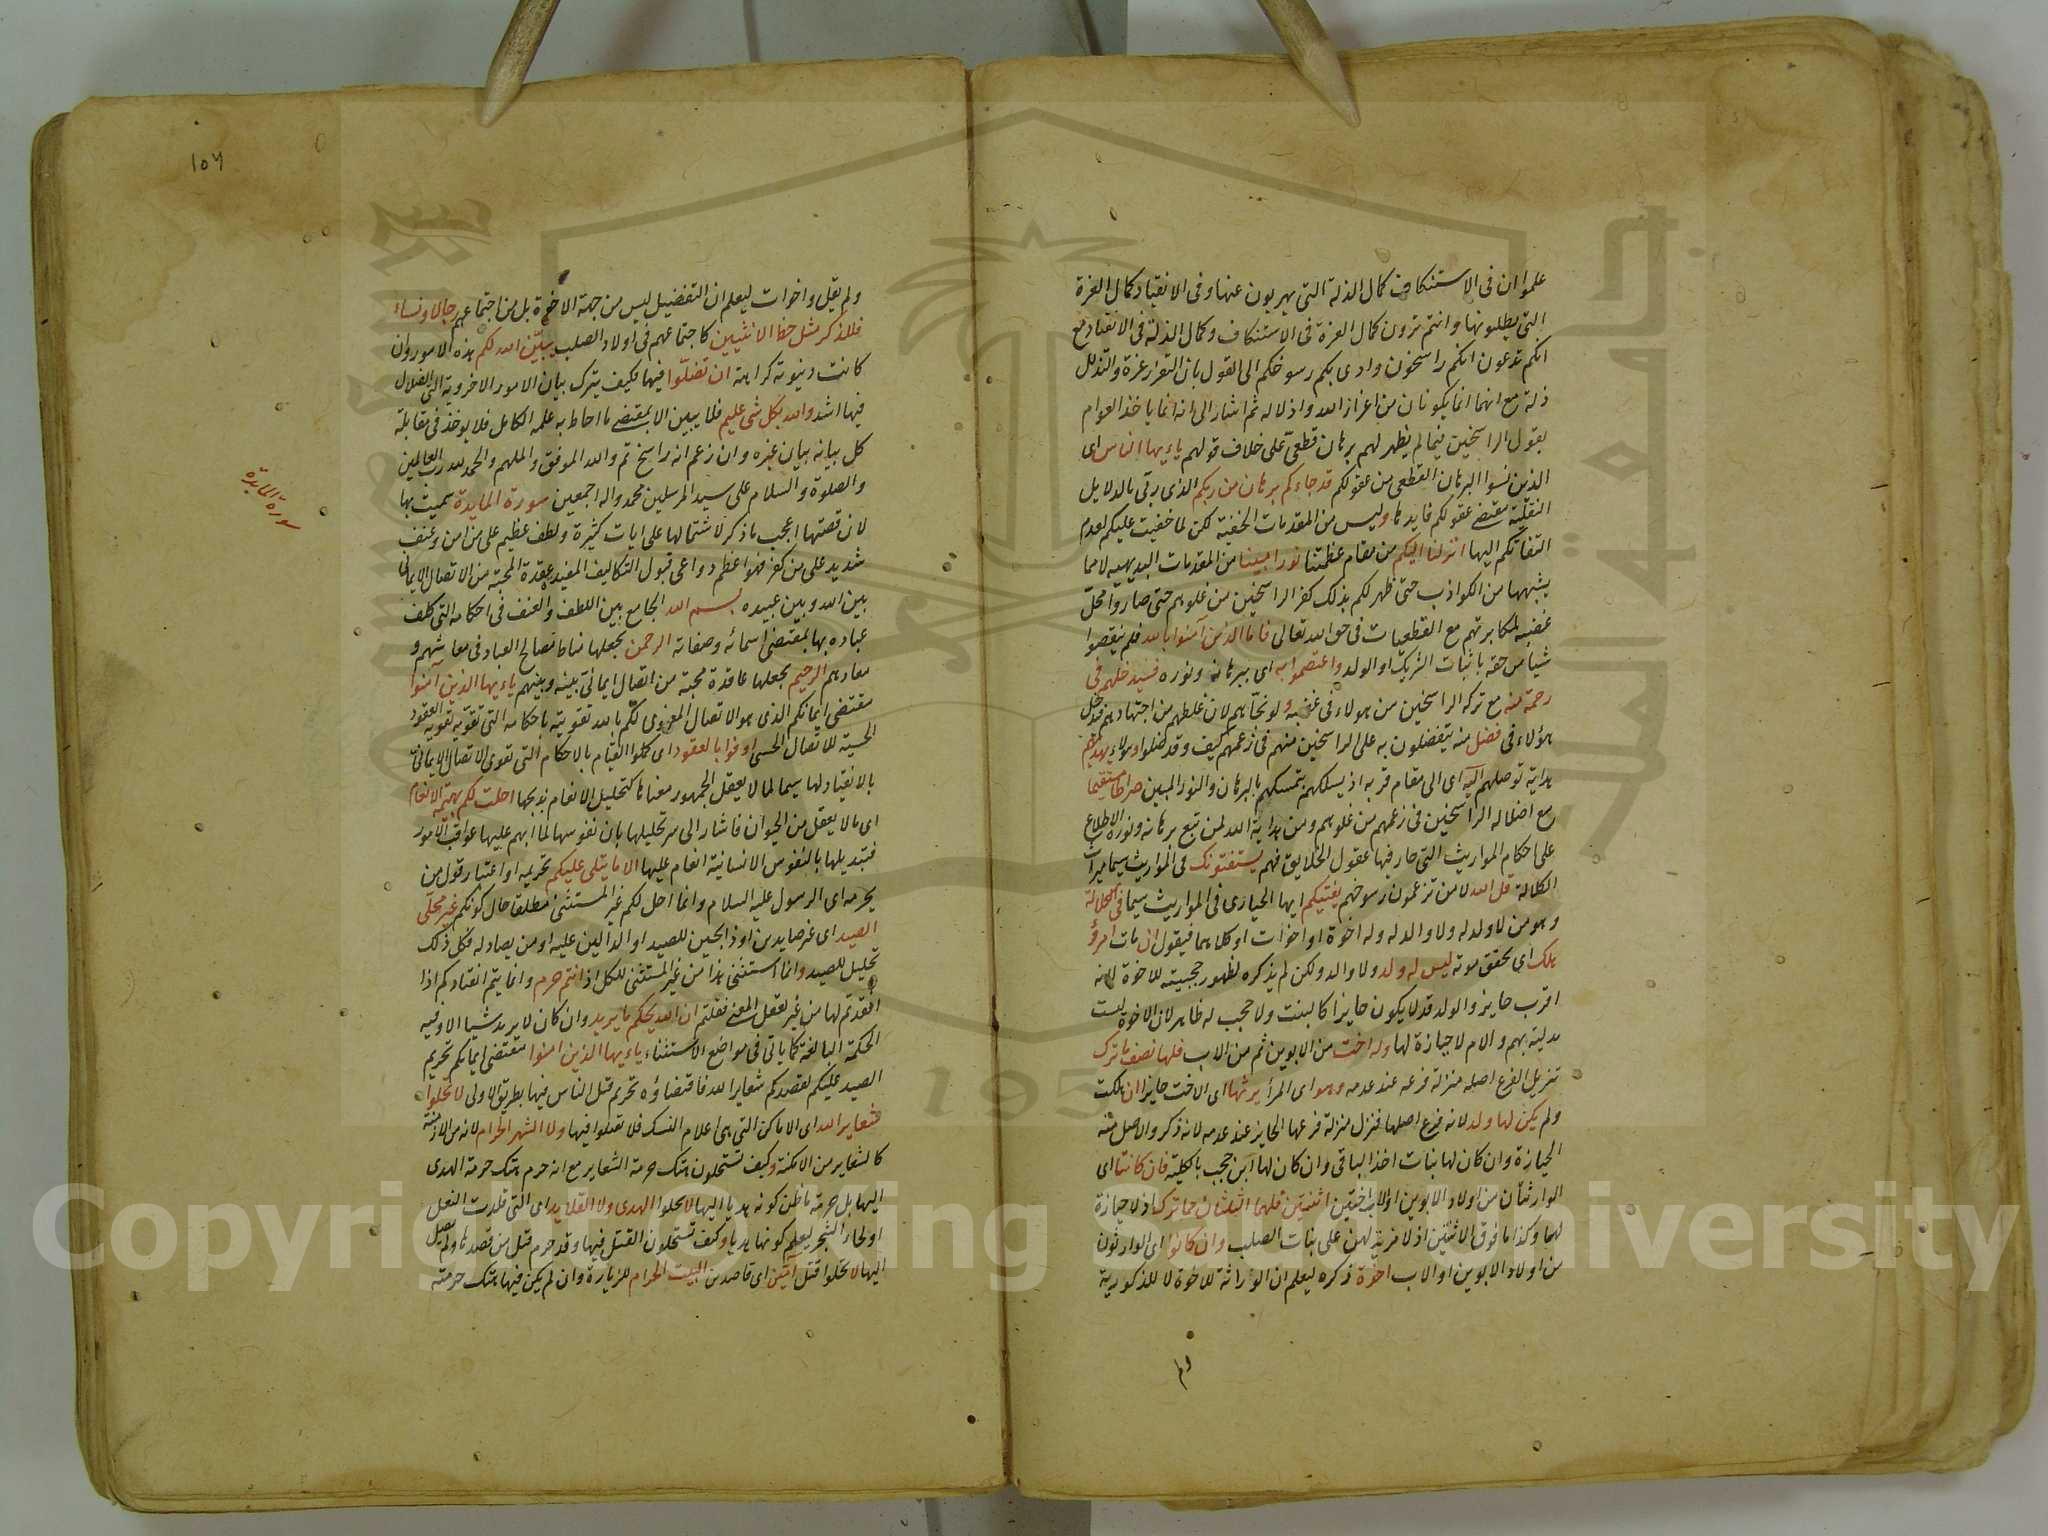 علموا ان فى الاستنكاف كمال الذلة التى يهربون عنها وفى الانقياد كمال العزة
التى يطلبونها وانتم ترون كمال العزة فى الاستنكاف وكمال الذلة فى الانقياد مع
انكم تدعون انكم راسخون وادى بكم رسوخكم الى القول بان التعزز عزة والتذلل
ذلة مع انهما انما يكونان من اعزاز الله واذلاله ثم اشار الى انه انما ياخذ العوام
بقول الراسخين فيما لم يظهر لهم برهان قطعى على خلاف قولهم ياءيها الناس اى
الذين نسوا البرهان القطعى من عقولكم قد جاءكم برهان من ربكم الذى ربى بالدلايل
النقلية مقتضى عقولكم فايدها وليس من المقدمات الخفية لكن لما خفيت عليكم لعدم
التفاتكم اليها انزلنا اليكم من مقام عظمتنا نورا مبينا من المقدمات البديهية لا مما
يشبهها من الكواذب حتى ظهر لكم بذلك كفر الراسخين من غلوهم حتى صاروا محل
غضبه لمكابرتهم مع القطعيات فى حق الله تعالى فاما الذين آمنوا بالله فلم ينقصوا
شيا من حقه باثبات الشريك او الولد واعتصموا به اى ببرهانه ونوره فسيدخلهم فى
رحمة منه مع تركه الراسخين من هولاء فى غضبه ولو نجاهم لان غلطهم من اجتهادهم فدخل
هؤلاء فى فضل منه يتفضلون به على الراسخين منهم فى زعمهم كيف وقد ضلوا وهولاء يهديهم
هداية توصلهم اليه اى الى مقام قربه اذ يسلكهم بتمسكهم بالبرهان والنور المبين صراطا مستقيما
مع اضلاله الراسخين فى زعمهم من غلوهم ومن هداية الله لمن تبع برهانه ونوره الاطلاع
على احكام المواريث التى حار فيها عقول الخلايق فهم يستفتونك فى المواريث سيما ميراث
الكلالة قل الله لا من تزعمون رسوخهم يفتيكم ايها الحيارى فى المواريث سيما فى الكلالة
وهو من لا ولد له ولا والد له وله اخوة او اخوات او كلاهما فيقول ان مات امرؤ
هلك اى تحقق موته ليس له ولد ولا والد ولكن لم يذكره لظهور حجبيته للاخوة لانه
اقرب حايز والولد قد لا يكون حايزا كالبنت ولا حجب له ظاهر لان الاخوة ليست
مدلية بهم والام لا حيازة لها وله اخت من الابوين ثم من الاب فلها نصف ما ترك
تنزيل الفرع اصله منزلة فرعه عند عدمه وهو اى المرأ يرثها اى الاخت حايزا ان هلكت
ولم يكن لها ولد لانه فرع اصلها فنزل منزلة فرعها الحايز عند عدمه لانه ذكر والاصل منه
الحيازة وان كان لها بنات اخذ الباقى وان كان لها ابن حجب بالكلية فان كانتا اى
الوارثتان من اولاد الابوين او الاب اختين اثنتين فلهما الثلثان مما ترك اذ لا حيازة
لهما وكذا ما فوق الاثنتين اذ لا مزية لهن على بنات الصلب وان كانوا اى الوارثون
من اولاد الابوين او الاب اخوة ذكره ليعلم ان الوراثة للاخوة لا للذكورية
ولم
١٥٦
ولم يقل واخوات ليعلم ان التفضيل ليس من جهة الاخوة بل من اجتماعهم رجالا ونساء
فللذكر مثل حظ الانثيين كاجتماعهم فى اولاد الصلب يبين الله لكم هذه الامور وان
كانت دنيوية كراهة ان تضلوا فيها فكيف يترك بيان الامور الاخروية التى الضلال
فيها اشد والله بكل شى عليم فلا يبين الا بمقتضى ما احاط به علمه الكامل فلا يوخذ فى مقابلة
كل بيانه بيان غيره وان زعم انه راسخ تم والله الموفق والملهم والحمد لله رب العالمين
والصلوة والسلام على سيد المرسلين محمد واله اجمعين سورة المايدة سميت بها
سورة المايدة
لان قصتها اعجب ما ذكر لاشتمالها على ايات كثيرة ولطف عظيم على من امن وعنف
شديد على من كفر فهو اعظم دواعى قبول التكاليف المفيد عقدة المحبة من الاتصال الايمانى
بين الله وبين عبيده بسم الله الجامع بين اللطف والعنف فى احكامه التى كلف
عباده بها بمقتضى اسمائه وصفاته الرحمن بجعلها مناط مصالح العباد فى معاشهم و
معادهم الرحيم بجعلها عاقدة محبة من اتصال ايمانى بينه وبينهم ياءيها الذين آمنوا
مقتضى ايمانكم الذى هو الاتصال المعنوى لكم بالله تقويته باحكامه التى تقويه تقوية العقود
الحسية للاتصال الحسى اوفوا بالعقود اى كملوا القيام بالاحكام التى تقوى الاتصال الايمانى
بالانقياد لها سيما لما لا يعقل الجمهور معناها كتحليل الانعام بذبحها احلت لكم بهيمة الانعام
اى ما لا يعقل من الحيوان فاشار الى سر تحليلها بان نفوسها لما ابهم عليها عواقب الامور
فتبديلها بالنفوس الانسانية انعام عليها الا ما يتلى عليكم تحريمه او اعتبار قول من
يحرمه اى الرسول عليه السلام وانما احل لكم غير المستثنى مطلقا حال كونكم غير محلى
الصيد اى غير صايدين او ذابحين للصيد او الدالين عليه او من يصاد له فكل ذلك
تحليل للصيد وانما استثنى هذا من غير المستثنى للكل اذ انتم حرم وانما يتم انقيادكم اذا
انقدتم لها من غير تعقل المعنى فقلتم ان الله يحكم ما يريد وان كان لا يريد شيا الا وفيه
الحكمة البالغة كما ياتى فى مواضع الاستثناء ياءيها الذين امنوا مقتضى ايمانكم تحريم
الصيد عليكم لقصدكم شعاير الله فاقتضاؤه تحريم قتل الناس فيها بطريق الاولى لا تحلوا
شعاير الله اى الاماكن التى هى اعلام النسك فلا تقتلوا فيها ولا الشهر الحرام لانه من الازمنة
كالشعاير من الامكنة وكيف تستحلون هتك حرمة الشعاير مع انه حرم هتك حرمة الهدى
اليها بل حرمة ما ظن كونه هديا اليها لا تحلوا الهدى ولا القلايد اى التى قلدت النعل
او لحاء الشجر ليعلم كونها هديا وكيف تستحلون القتل فيها وقد حرم قتل من قصدها ولم يصل
اليها لا تحلوا قتل آمين اى قاصدين البيت الحرام للزيارة وان لم يكن فيها هتك حرمته
Copyright © King Saud University